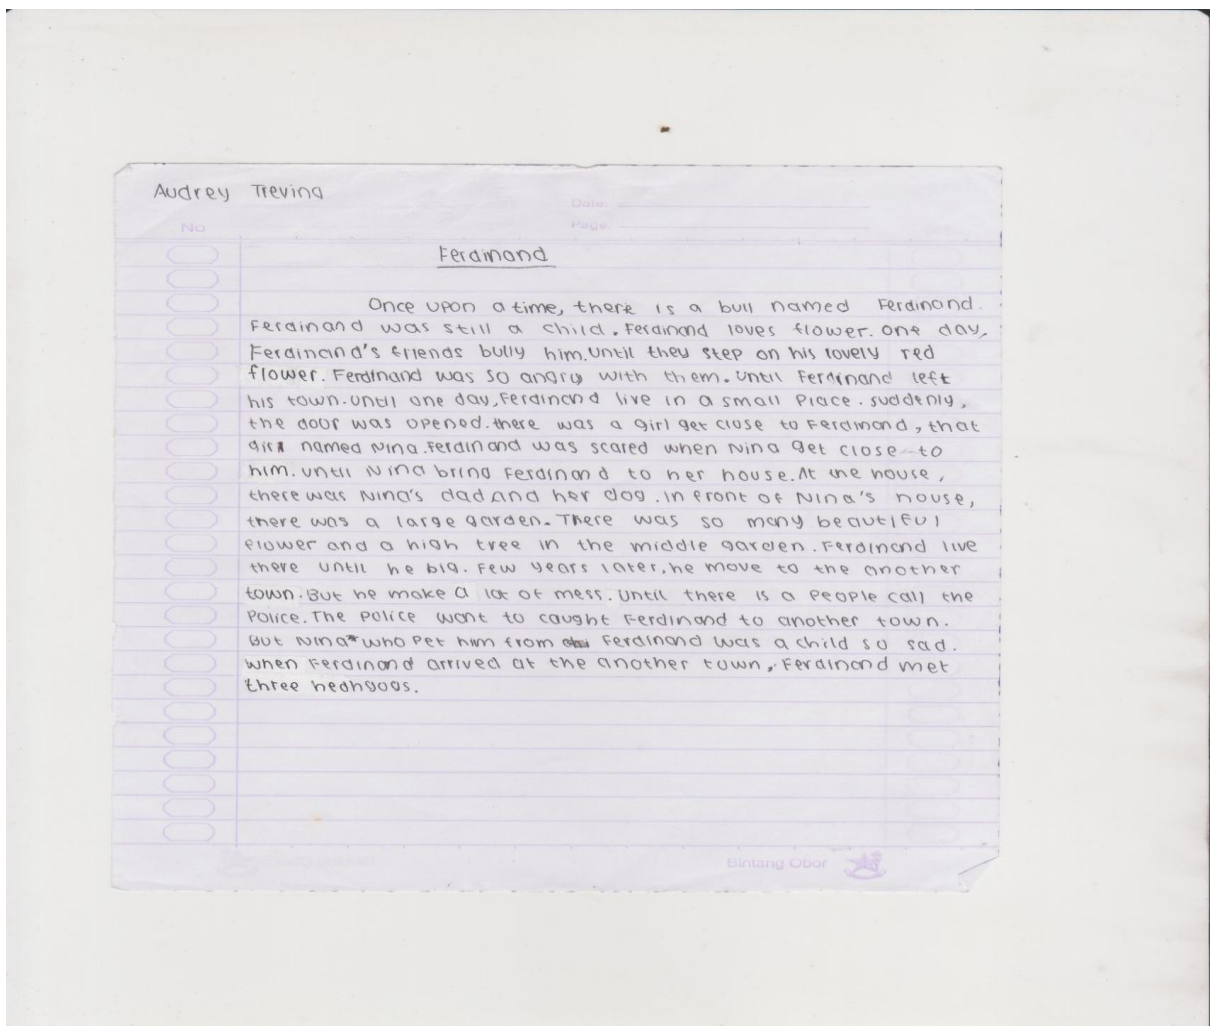 Audrey Trevina
Date:
Page:
No
Ferdinand
Once upon a time, there is a bull named Ferdinand.
Ferdinand was still a child. Ferdinand loves flower. one day,
Ferdinand's friends bully him. Until they step on his lovely red
flower. Ferdinand was so angry with them. Until Ferdinand left
his town. Until one day, Ferdinand live in a small place. suddenly,
the door was opened. there was a girl get close to Ferdinand, that
girl named Nina. Ferdinand was scared when Nina get close to
him. Until Nina bring Ferdinand to her house. At the house,
there was Nina's dad and her dog. In front of Nina's house,
there was a large garden. There was so many beautiful
flower and a high tree in the middle garden. Ferdinand live
there until he big. Few years later, he move to the another
town. But he make a lot of mess. Until there is a people call the
Police. The police want to caught Ferdinand to another town.
But Nina who pet him from Ferdinand was a child so sad.
when Ferdinand arrived at the another town, Ferdinand met
three hedhgogs.
Bintang Obor